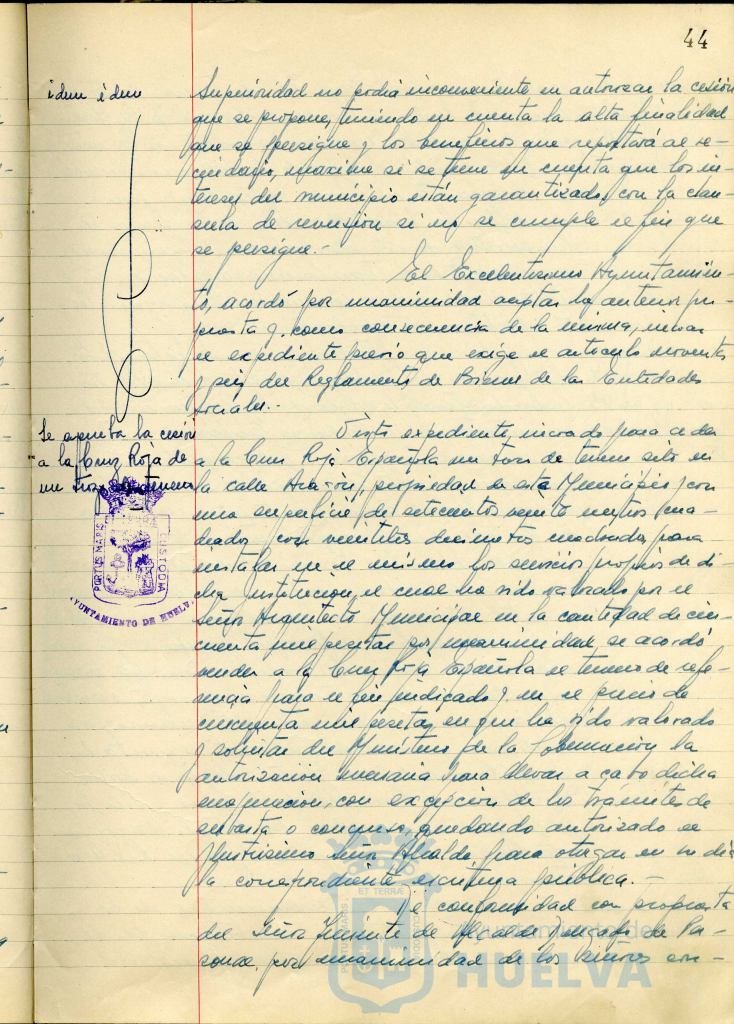 44
idem idem
Superioridad no podrá inconveniente en autorizar la cesión
que se propone, teniendo en cuenta la alta finalidad
que se persigue y los beneficios que reportará al ve-
cindario, maxime si se tiene en cuenta que los in-
tereses del municipio están garantizados, con la clau-
sula de reversión si no se cumple el fin que
se persigue.-
El Excelentisimo Ayuntamien-
to, acordó por unanimidad aceptar la anterior pro-
puesta y, como consecuencia de la misma, incoar
el expediente previo que exige el articulo noventa
y seis del Reglamento de Bienes de las Entidades
Locales.-
Se aprueba la cesión
a la Cruz Roja de
un trozo de terreno
Visto expediente, incoado para ceder
a la Cruz Roja Española un trozo de terreno sito en
la calle, propiedad de este Municipio y con
una superficie de setecientos veinte metros cua-
drados, con veintiseis decimetros cuadrados, para
instalar en el mismo los servicios propios de di-
cha institución, el cual ha sido valorado por el
Señor Arquitecto Municipal en la cantidad de cin-
cuenta mil pesetas, por unanimidad, se acordó
vender a la Cruz Roja Española el terreno de refe-
rencia para el fin indicado y en el precio de
cincuenta mil pesetas, en que ha sido valorado
y solicitar del Ministerio de la Gobernación la
autorización necesaria para llevar a cabo dicha
enajenación, con excepción de los trámites de
subasta o concurso, quedando autorizado el
Ilustrisimo Señor Alcalde, para otorgar en su dia
la correspondiente escritura pública.-
De conformidad con propuesta
del Señor Teniente de Alcalde Delegado de Per-
sonal, por unanimidad de los Señores con-
PORTUS MARIS
CUSTODIA
AYUNTAMIENTO DE HUELVA
ET TERRAE
PORTUS MARIS
Ayuntamiento de
HUELVA